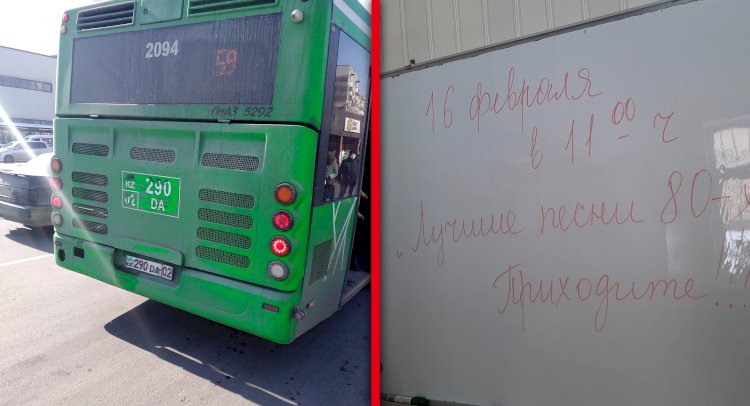 2094
59
ЛиАЗ 5292
KZ 290
02 DA
290 DA 02
16 февраля
в 11 00 ч
„Лучшие песни 80-х
Приходите!!...